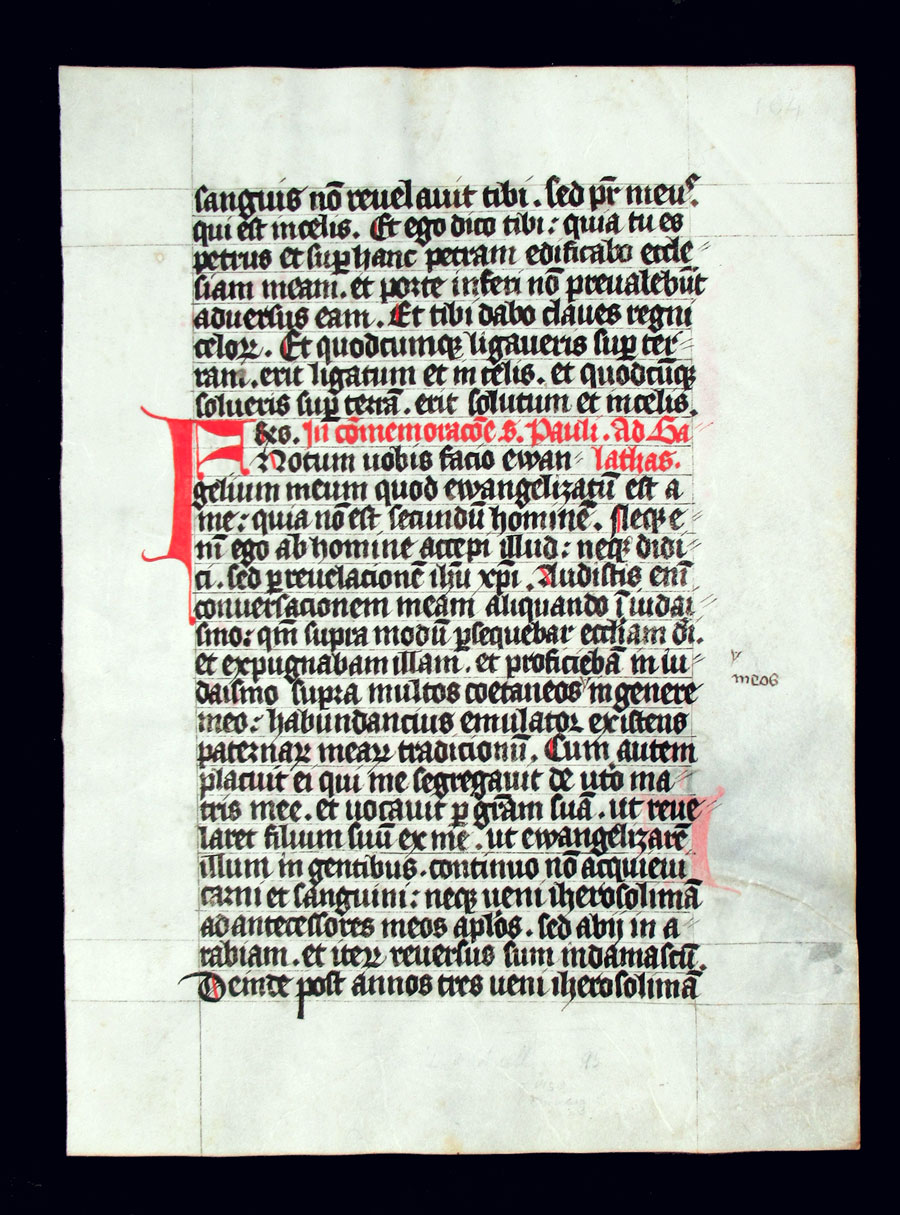 sanguis nō reuelauit tibi . sed pr̄ meus .
qui est in celis . Et ego dico tibi : quia tu es
petrus et suꝑ hanc petram edificabo eccle
siam meam . et porte inferi nō preualebūt
aduersus eam . Et tibi dabo claues regni
celoꝝ . Et quodcumqꝫ ligaueris suꝑ ter
ram . erit ligatum et in celis . et quodcūqꝫ
solueris suꝑ terrā . erit solutum et in celis .
In cōmemoracōe . s . Pauli . Ad Ga
F res . Notum uobis facio ewan lathas .
gelium meum quod ewangelizatū est a
me : quia nō est secundū hominē . Neqꝫ e
nī ego ab homine accepi illud : neqꝫ didi
ci . sed ꝑ reuelacionē ihū xp̄i . Audistis enī
conuersacionem meam aliquando ī iudai
smo : qm̄ supra modū ꝑsequebar eccl̄iam dī .
et expugnabam illam . et proficiebā in iu
daismo supra multos coetaneos in genere
meos
meo : habundancius emulator existens
paternaꝝ meaꝝ tradicionū . Cum autem
placuit ei qui me segregauit de uto ma
tris mee . et uocauit ꝑ grām suā . ut reue
laret filium suū ex mē . ut ewangelizarē
illum in gentibus . continuo nō acquieui
carni et sanguini : neqꝫ ueni iherosolimā
ad antecessores meos apl̄os . sed abij in a
rabiam . et iteꝝ reuersus sum in damascū .
Deinde post annos tres ueni iherosolimā